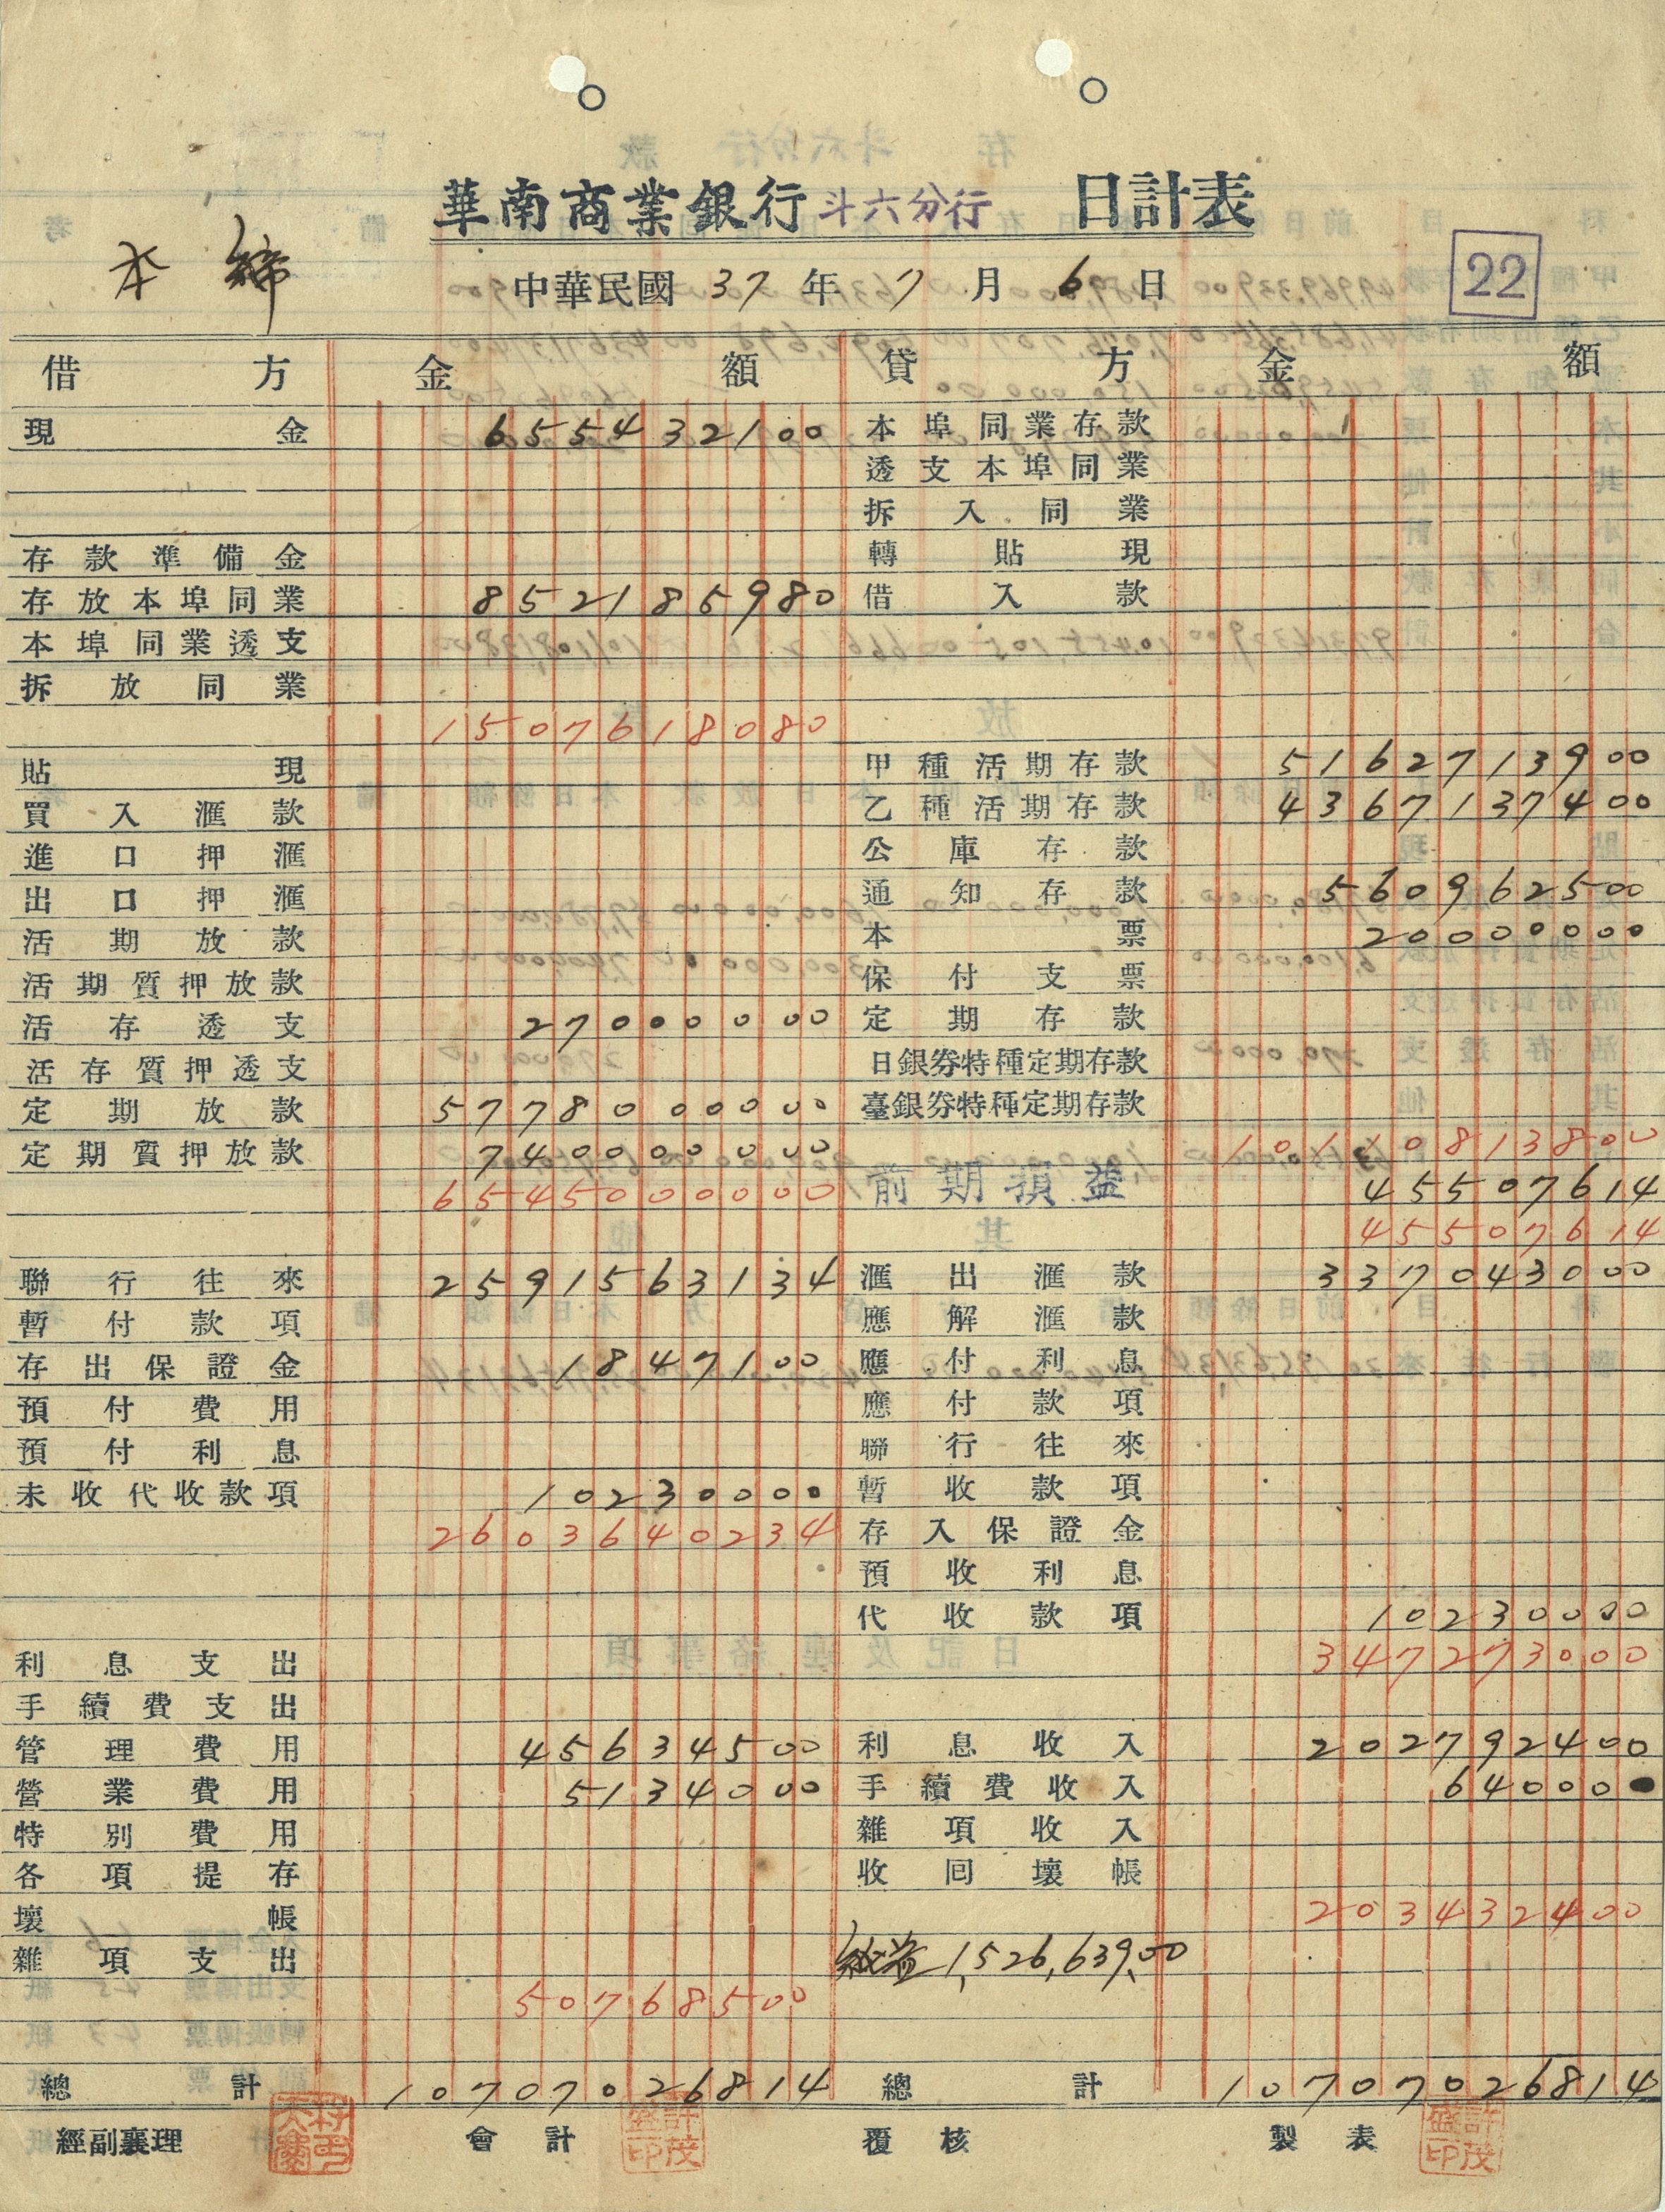 華南商業銀行 斗六分行 日計表
本 締
中華民國 37 年 7 月 6 日
22
借方 金額 貸方 金額
現金 6554321 00 本埠同業存款
透支本埠同業
拆入同業
存款準備金 轉貼現
存放本埠同業 8521859 80 借入款
本埠同業透支
拆放同業
15076180 80
貼現 甲種活期存款 51627139 00
買入滙款 乙種活期存款 43671374 00
進口押滙 公庫存款
出口押滙 通知存款 5609625 00
活期放款 本票 200000 00
活期質押放款 保付支票
活存透支 270000 00 定期存款
活存質押透支 日銀券特種定期存款
定期放款 57780000 00 臺銀券特種定期存款
定期質押放款 7400000 00 101108138 00
65450000 00 前期損益 455076 14
455076 14
聯行往來 25915631 34 滙出滙款 3370430 00
暫付款項 應解滙款
存出保證金 18471 00 應付利息
預付費用 應付款項
預付利息 聯行往來
未收代收款項 102300 00 暫收款項
26036402 34 存入保證金
預收利息
代收款項 102300 00
利息支出 3472730 00
手續費支出
管理費用 456345 00 利息收入 2027924 00
營業費用 51340 00 手續費收入 6400 00
特別費用 雜項收入
各項提存 收回壞帳
壞帳 2034324 00
雜項支出 純益 1,526,639.00
507685 00
總計 107070268 14 總計 107070268 14
經副襄理 會計 許茂盛印 覆核 製表 許茂盛印